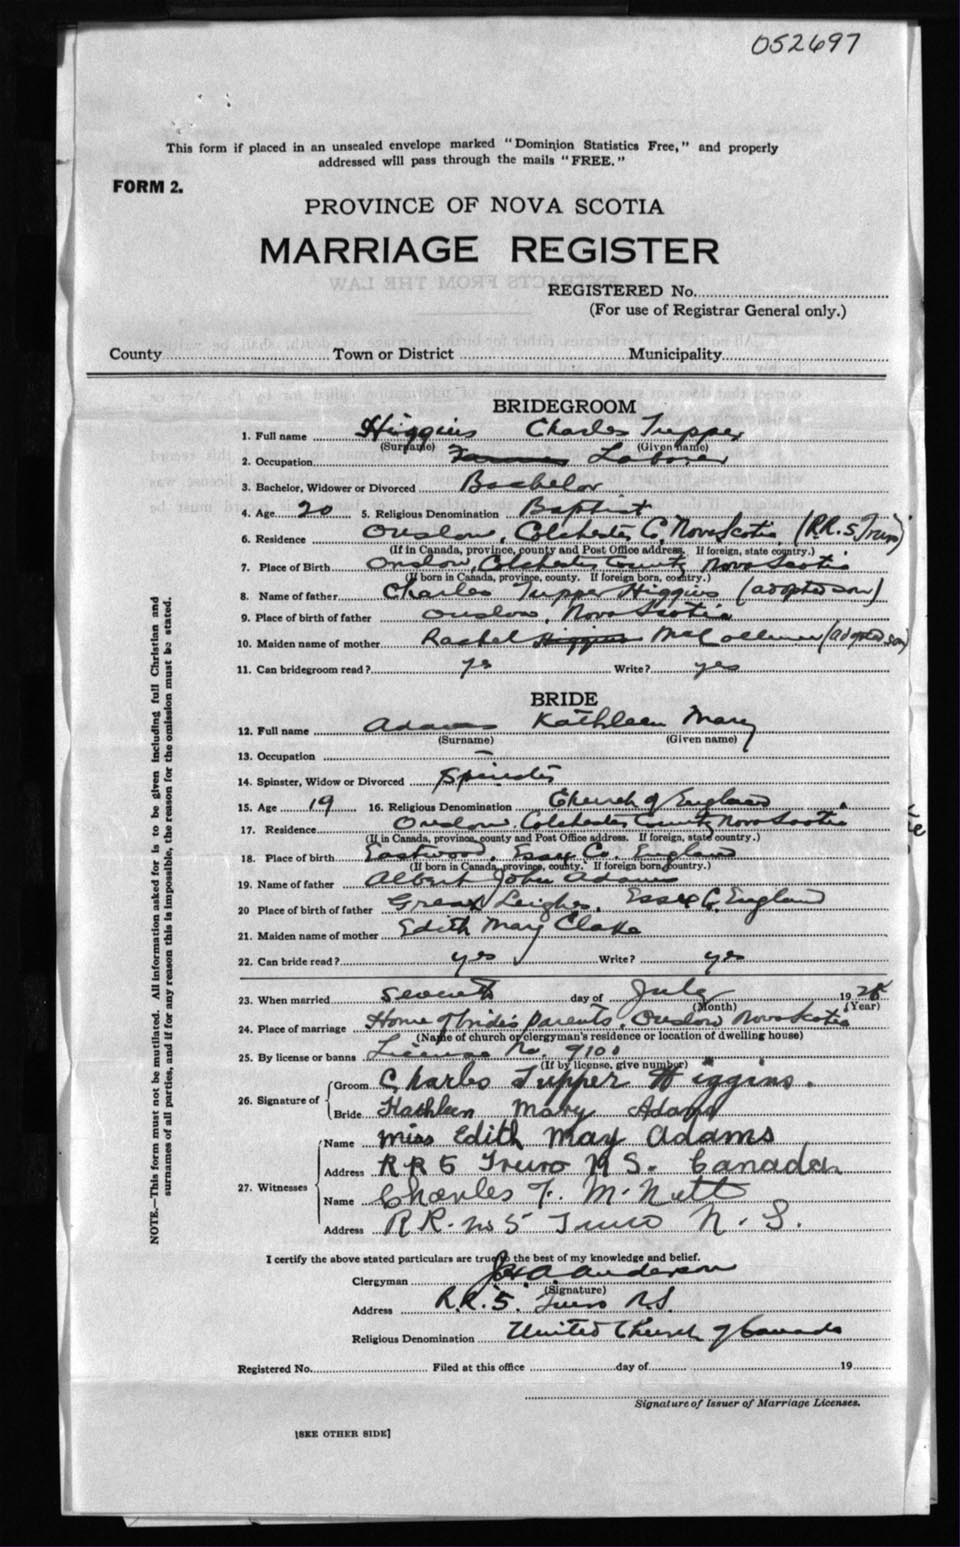 052697
This form if placed in an unsealed envelope marked "Dominion Statistics Free," and properly
addressed will pass through the mails "FREE."
FORM 2.
PROVINCE OF NOVA SCOTIA
MARRIAGE REGISTER
REGISTERED No.
(For use of Registrar General only.)
County Town or District Municipality
BRIDEGROOM
1. Full name Higgins Charles Tupper
(Surname) (Given name)
2. Occupation Laborer
3. Bachelor, Widower or Divorced Bachelor
4. Age 20 5. Religious Denomination Baptist
6. Residence Onslow, Colchester Co, Nova Scotia (R.R. 5 Truro)
(If in Canada, province, county and Post Office address. If foreign, state country.)
7. Place of Birth Onslow, Colchester County Nova Scotia
(If born in Canada, province, county. If foreign born, country.)
8. Name of father Charles Tupper Higgins (adopted son)
9. Place of birth of father Onslow, Nova Scotia
10. Maiden name of mother Rachel Higgins (adopted son)
11. Can bridegroom read? yes Write? yes
BRIDE
12. Full name Adams Kathleen Mary
(Surname) (Given name)
13. Occupation —
14. Spinster, Widow or Divorced Spinster
15. Age 19 16. Religious Denomination Church of England
17. Residence Onslow, Colchester County Nova Scotia
(If in Canada, province, county and Post Office address. If foreign, state country.)
18. Place of birth Eastwood, Essex Co. England
(If born in Canada, province, county. If foreign born, country.)
19. Name of father Albert John Adams
20 Place of birth of father Great Leighs, Essex Co. England
21. Maiden name of mother Edith Mary
22. Can bride read? yes Write? yes
23. When married seventh day of July 19
(Month) (Year)
24. Place of marriage Home of bride's parents, Onslow Nova Scotia
(Name of church or clergyman's residence or location of dwelling house)
25. By license or banns License No. 9100
(If by license, give number)
26. Signature of Groom Charles Tupper Higgins.
Bride Kathleen Mary Adams
27. Witnesses Name Miss Edith May Adams
Address R R 5 Truro N S. Canada
Name Charles F. McNutt
Address R.R. no 5 Truro N. S.
I certify the above stated particulars are true to the best of my knowledge and belief.
Clergyman Anderson
(Signature)
Address R.R. 5. Truro N.S.
Religious Denomination United Church of Canada
Registered No. Filed at this office day of 19
Signature of Issuer of Marriage Licenses.
[SEE OTHER SIDE]
NOTE.—This form must not be mutilated. All information asked for is to be given including full Christian and
surnames of all parties, and if for any reason this is impossible, the reason for the omission must be stated.